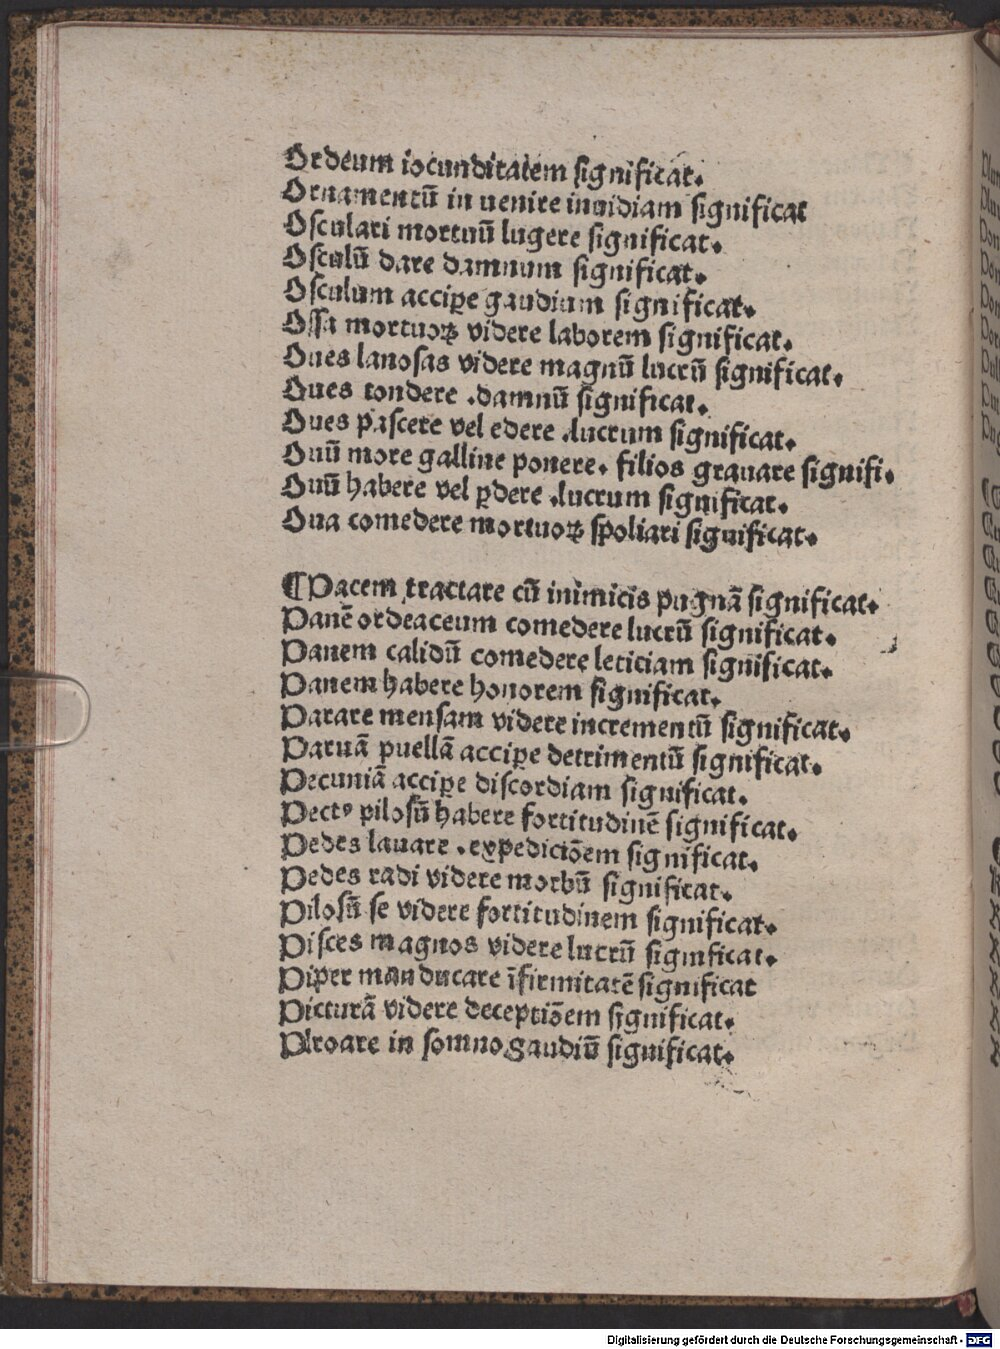 Ordeum iocunditatem significat.
Ornamentū in uenire inuidiam significat
Osculari mortuū lugere significat.
Osculū dare damnum significat.
Osculum accip̲e gaudium significat.
Ossa mortuoꝝ videre laborem significat.
Oues lanosas videre magnū lucrū significat.
Oues tondere .damnū significat.
Oues pascere vel edere .lucrum significat.
Ouū more galline ponere. filios grauare signifi.
Ouū habere vel ꝑdere .lucrum significat.
Oua comedere mortuoꝝ spoliari significat.
¶Pacem tractare cū inimicis pugnā significat.
Panē ordeaceum comedere lucrū significat.
Panem calidū comedere leticiam significat.
Panem habere honorem significat.
Parare mensam videre incrementū significat.
Paruā puellā acciꝑe detrimentū significat.
Pecuniā acciꝑe discordiam significat.
Pectꝰ pilosū habere fortitudinē significat.
Pedes lauare .expediciōem significat.
Pedes radi videre morbū significat.
Pilosū se videre fortitudinem significat.
Pisces magnos videre lucrū significat.
Piper manducare īfirmitatē significat
Picturā videre deceptiōem significat.
Plroare in somno gaudiū significat.
Digitalisierung gefördert durch die Deutsche Forschungsgemeinschaft - DFG